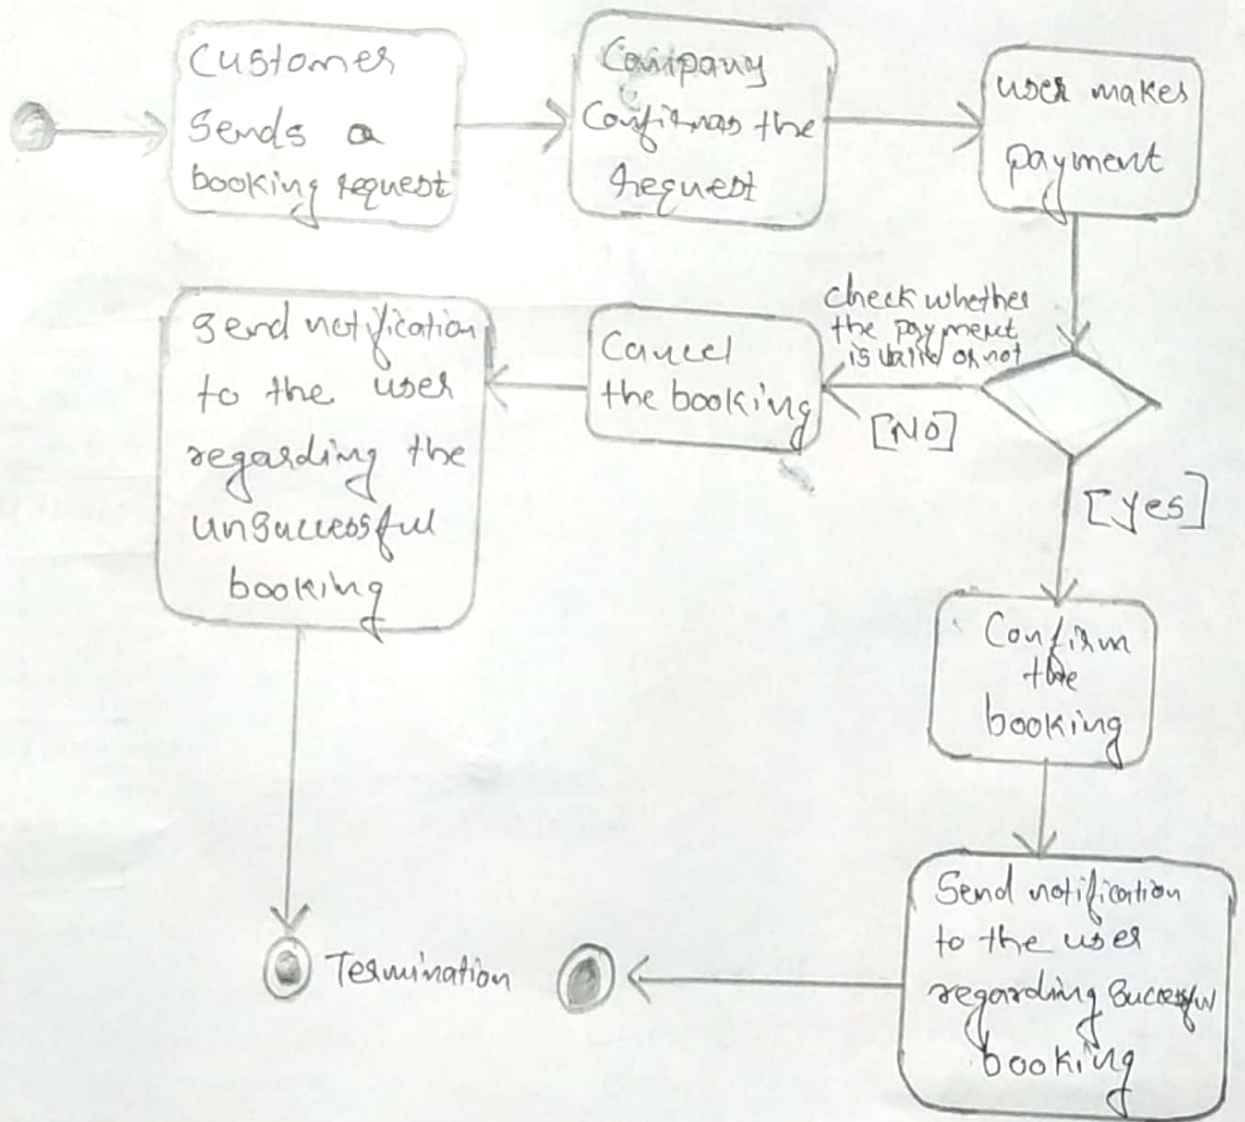 Customer
Sends a
booking request
Company
Confirms the
request
user makes
payment
check whether
the payment
is valid or not
[No]
[yes]
Cancel
the booking
Send notification
to the user
regarding the
unsuccessful
booking
Confirm
the
booking
Send notification
to the user
regarding successful
booking
Termination